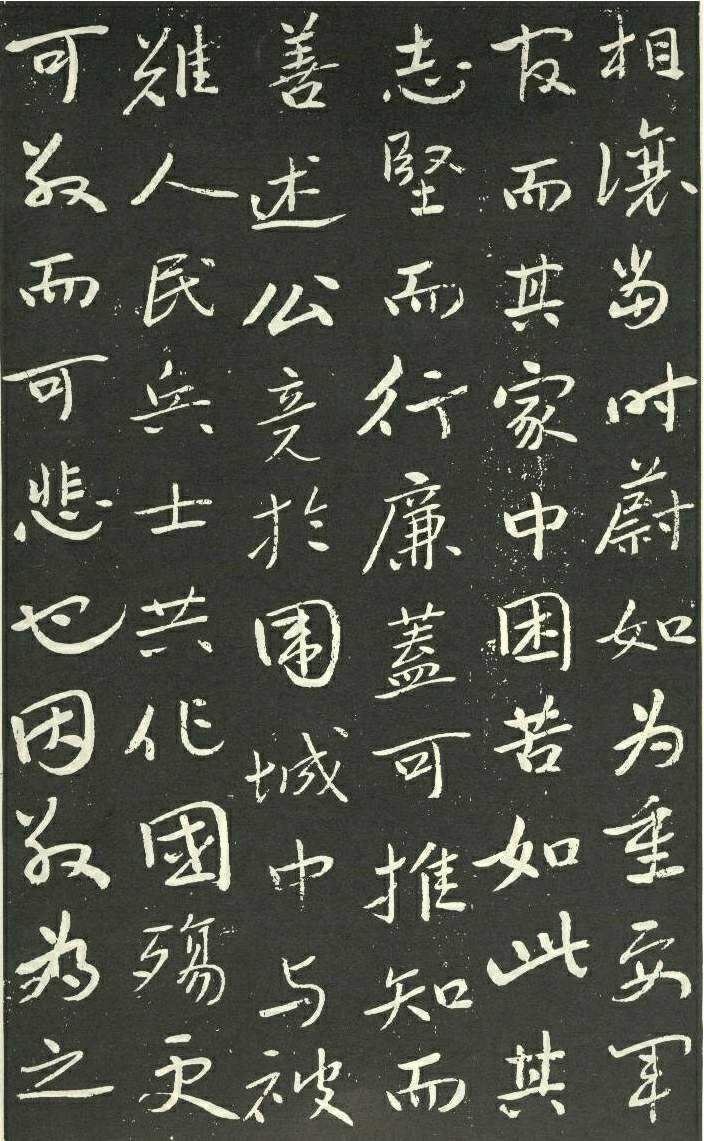 相讓當時蔚如为重要軍
官而其家中困苦如此其
志堅而行廉蓋可推知而
善述公竟於围城中与被
難人民兵士共作國殤更
可敬而可悲也因敬為之